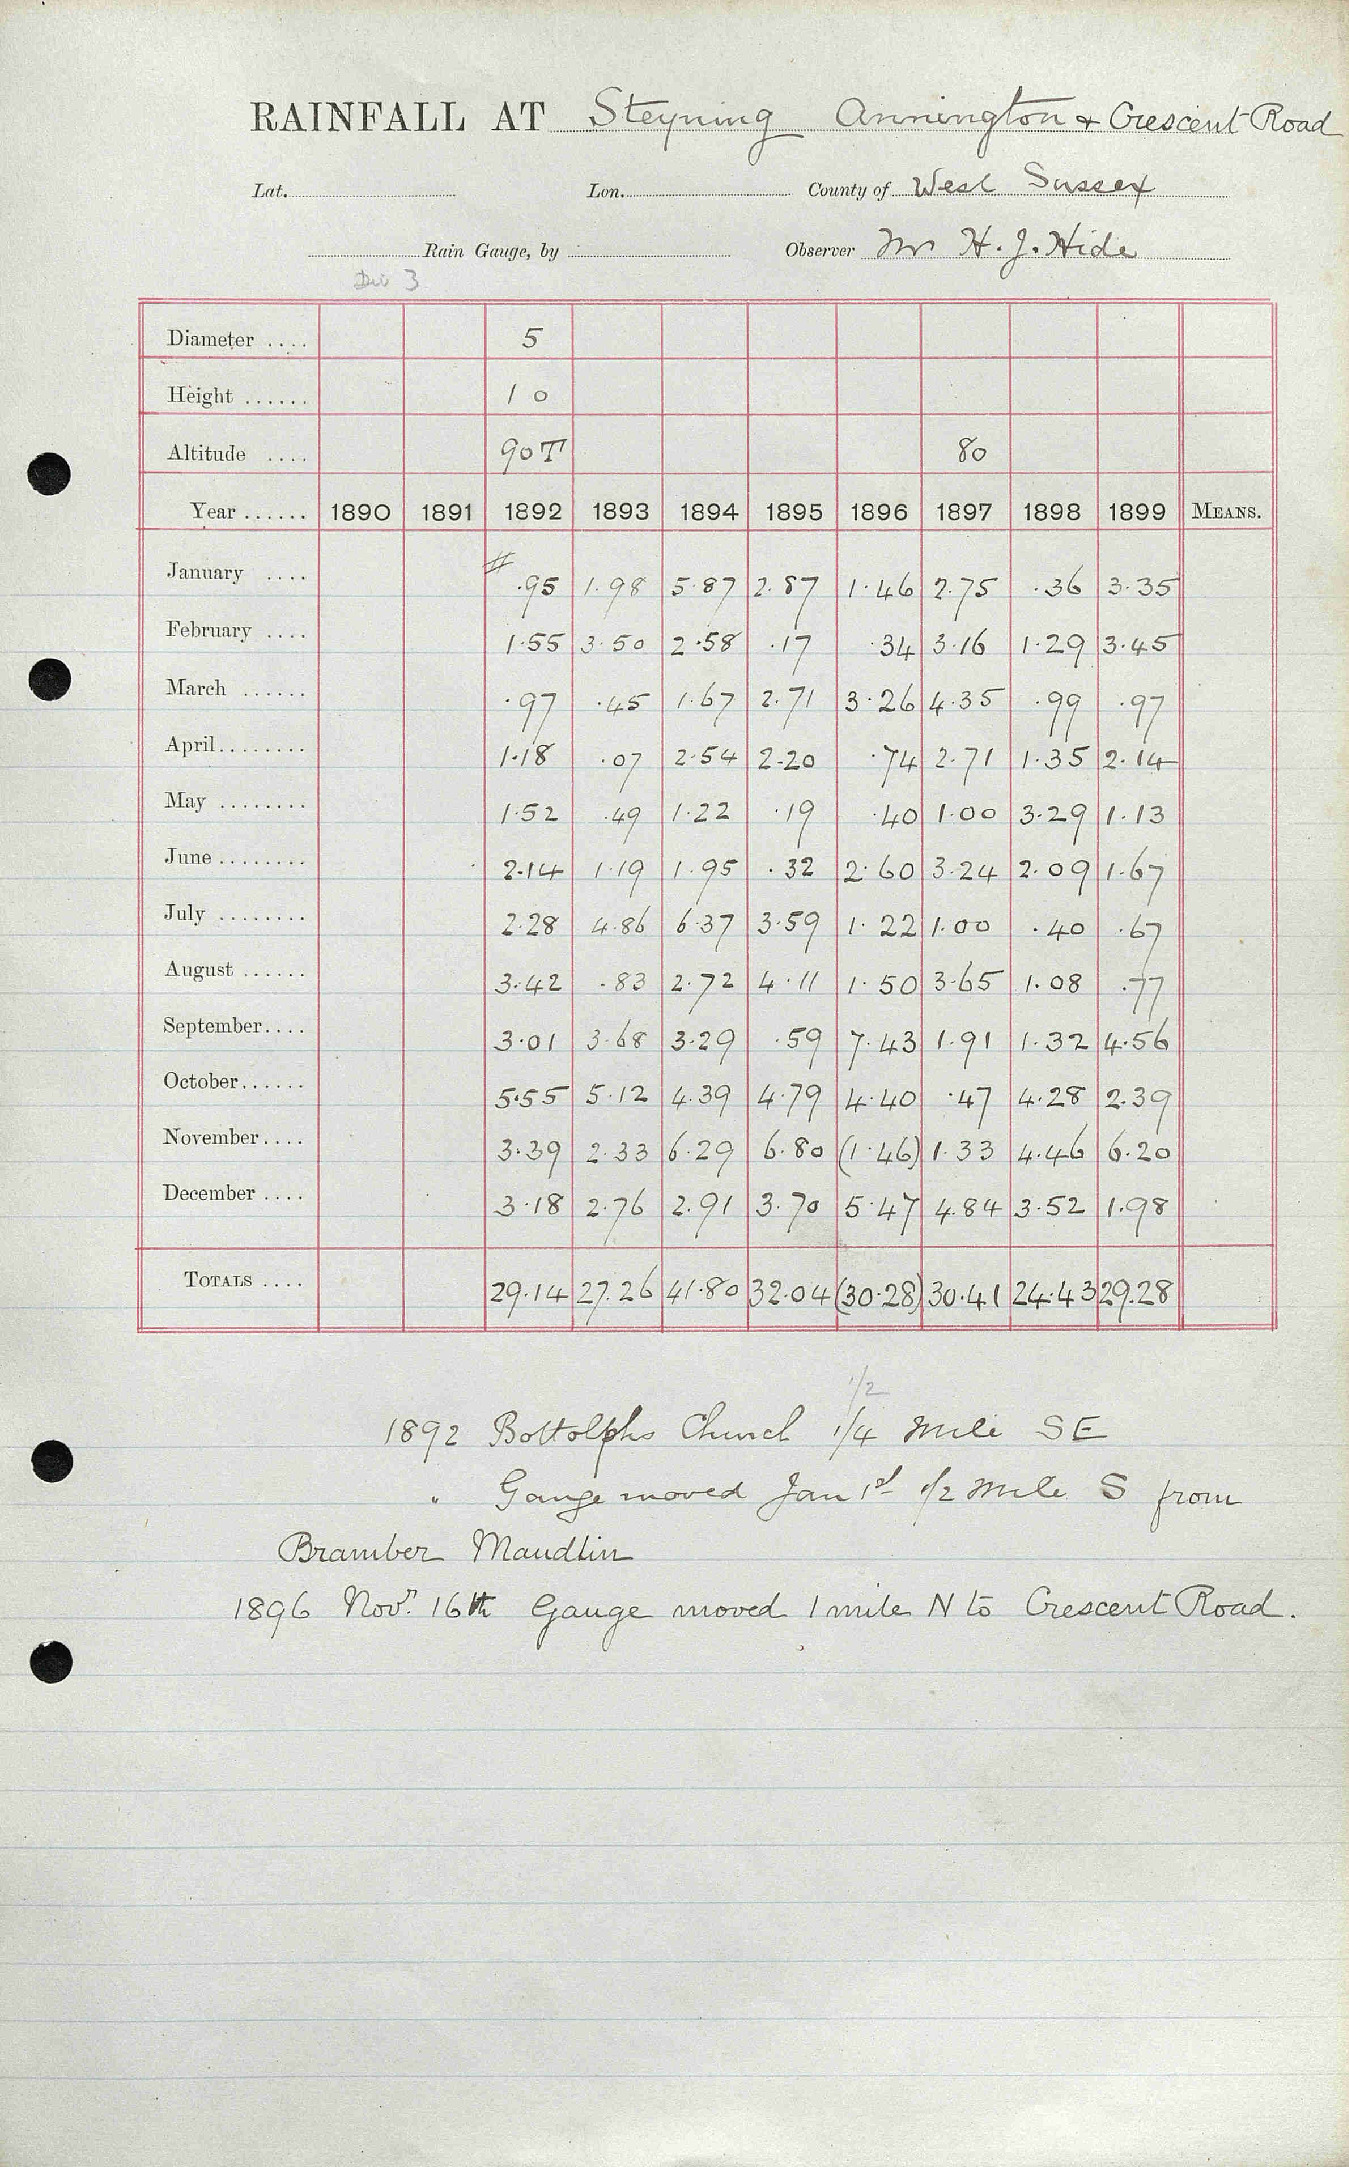 RAINFALL AT Steyning Annington & Crescent Road
Lat. Lon. County of West Sussex
Rain Gauge, by Observer Mr H. J. Hide
Div 3
Diameter .... 5
Height ...... 1 0
Altitude .... 90T 80
Year ...... 1890 1891 1892 1893 1894 1895 1896 1897 1898 1899 MEANS.
#
January .... .95 1.98 5.87 2.87 1.46 2.75 .36 3.35
February .... 1.55 3.50 2.58 .17 .34 3.16 1.29 3.45
March ...... .97 .45 1.67 2.71 3.26 4.35 .99 .97
April........ 1.18 .07 2.54 2.20 .74 2.71 1.35 2.14
May ........ 1.52 .49 1.22 .19 .40 1.00 3.29 1.13
June ........ 2.14 1.19 1.95 .32 2.60 3.24 2.09 1.67
July ........ 2.28 4.86 6.37 3.59 1.22 1.00 .40 .67
August ...... 3.42 .83 2.72 4.11 1.50 3.65 1.08 .77
September.... 3.01 3.68 3.29 .59 7.43 1.91 1.32 4.56
October...... 5.55 5.12 4.39 4.79 4.40 .47 4.28 2.39
November.... 3.39 2.33 6.29 6.80 (1.46) 1.33 4.46 6.20
December .... 3.18 2.76 2.91 3.70 5.47 4.84 3.52 1.98
TOTALS .... 29.14 27.26 41.80 32.04 (30.28) 30.41 24.43 29.28
1/2
1892 Bottolphs Church 1/4 mile SE
" Gauge moved Jan 1st 1/2 mile S from
Bramber Maudlin
1896 Novr. 16th Gauge moved 1 mile N to Crescent Road.